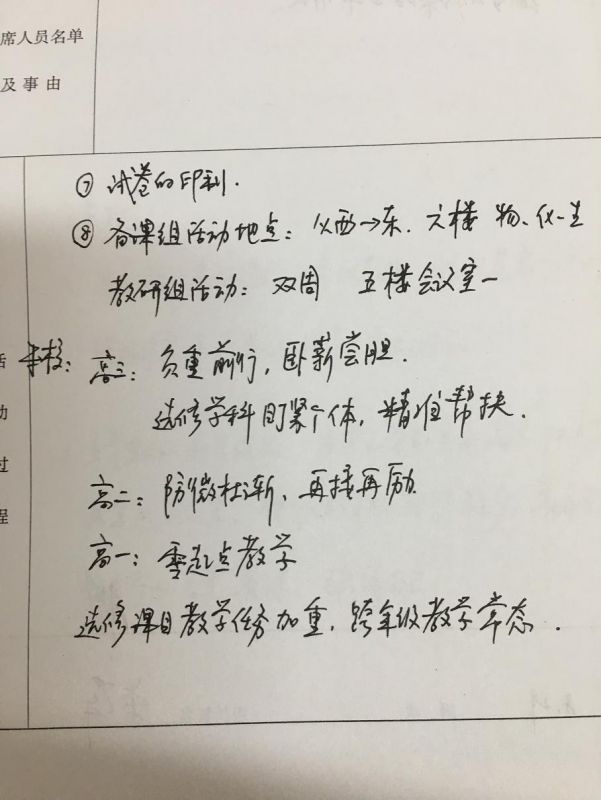 席人员名单
及事由
⑦ 试卷的印刷.
⑧ 备课组活动地点: 从西→东. 六楼 物、化、生
教研组活动: 双周 五楼会议室一
本校: 高三: 负重前行, 卧薪尝胆.
选修学科盯紧个体, 精准帮扶.
高二: 防微杜渐、再接再励
高一: 零起点教学
选修课目教学任务加重, 跨年级教学常态.
活
动
过
程